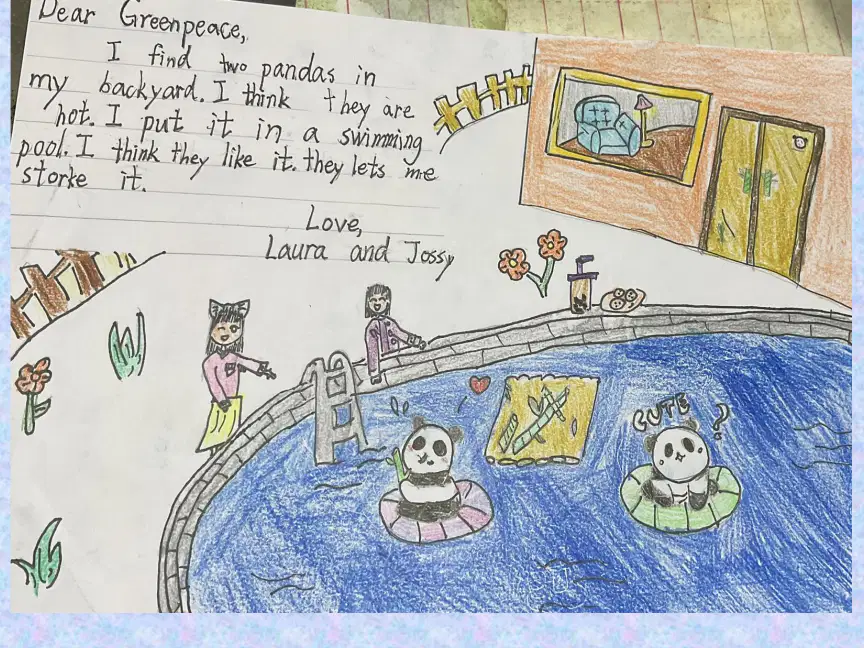 Dear Greenpeace,
I find two pandas in
my backyard. I think they are
hot. I put it in a swimming
pool. I think they like it. they lets me
storke it.
Love,
Laura and Jossy
CUTE
?